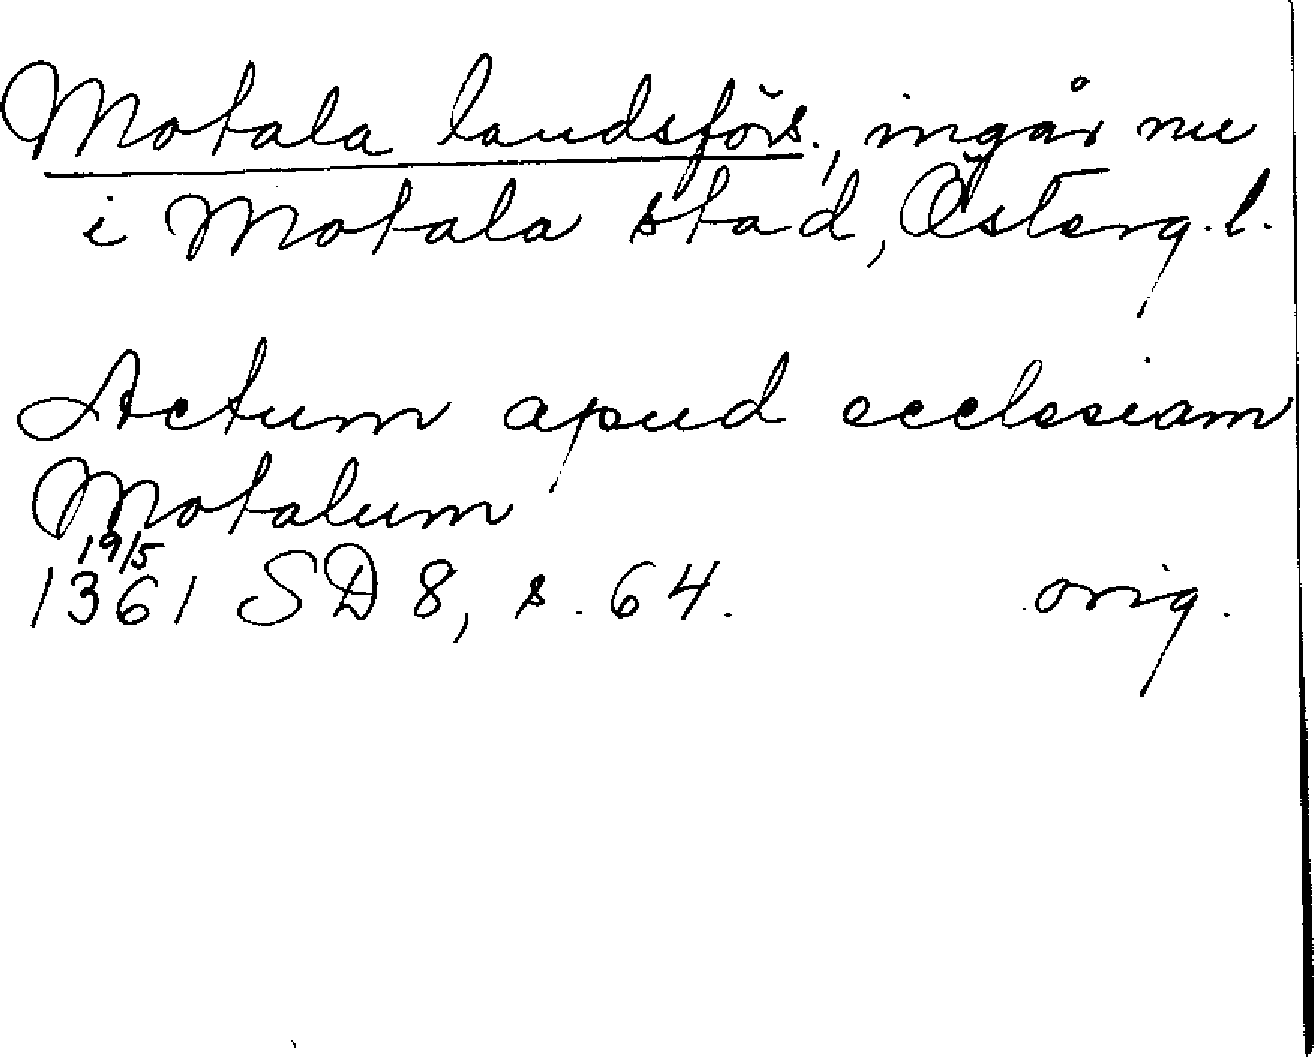 Motala landsförs., ingår nu
i Motala stad, Österg.l.
Actum apud ecclesiam
Motalum
19/5
1361 SD 8, s. 64. orig.